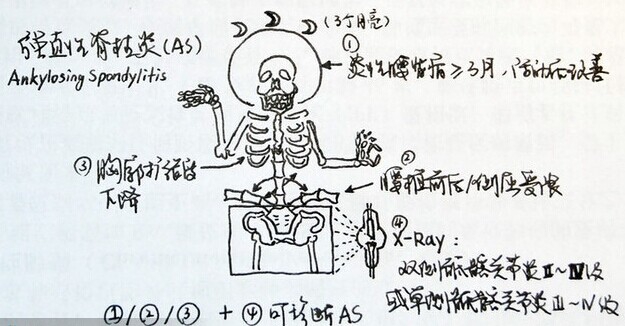 强直性脊柱炎(AS)
Ankylosing Spondylitis
(3个月亮)
① 炎性腰背痛≥3月,活动后改善
② 腰椎前后/侧屈受限
③ 胸廓扩张度
下降
④ X-Ray:
双侧骶髂关节炎Ⅱ~Ⅳ级
或单侧骶髂关节炎Ⅲ~Ⅳ级
①/②/③ + ④ 可诊断AS